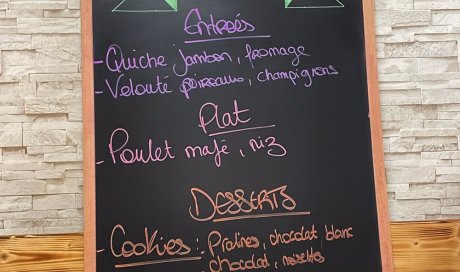 Entrées
- Quiche jambon, fromage
- Velouté poireaux, champignons
Plat
- Poulet mafé, riz
DESSERTS
- Cookies : Pralines, chocolat blanc
chocolat, noisettes